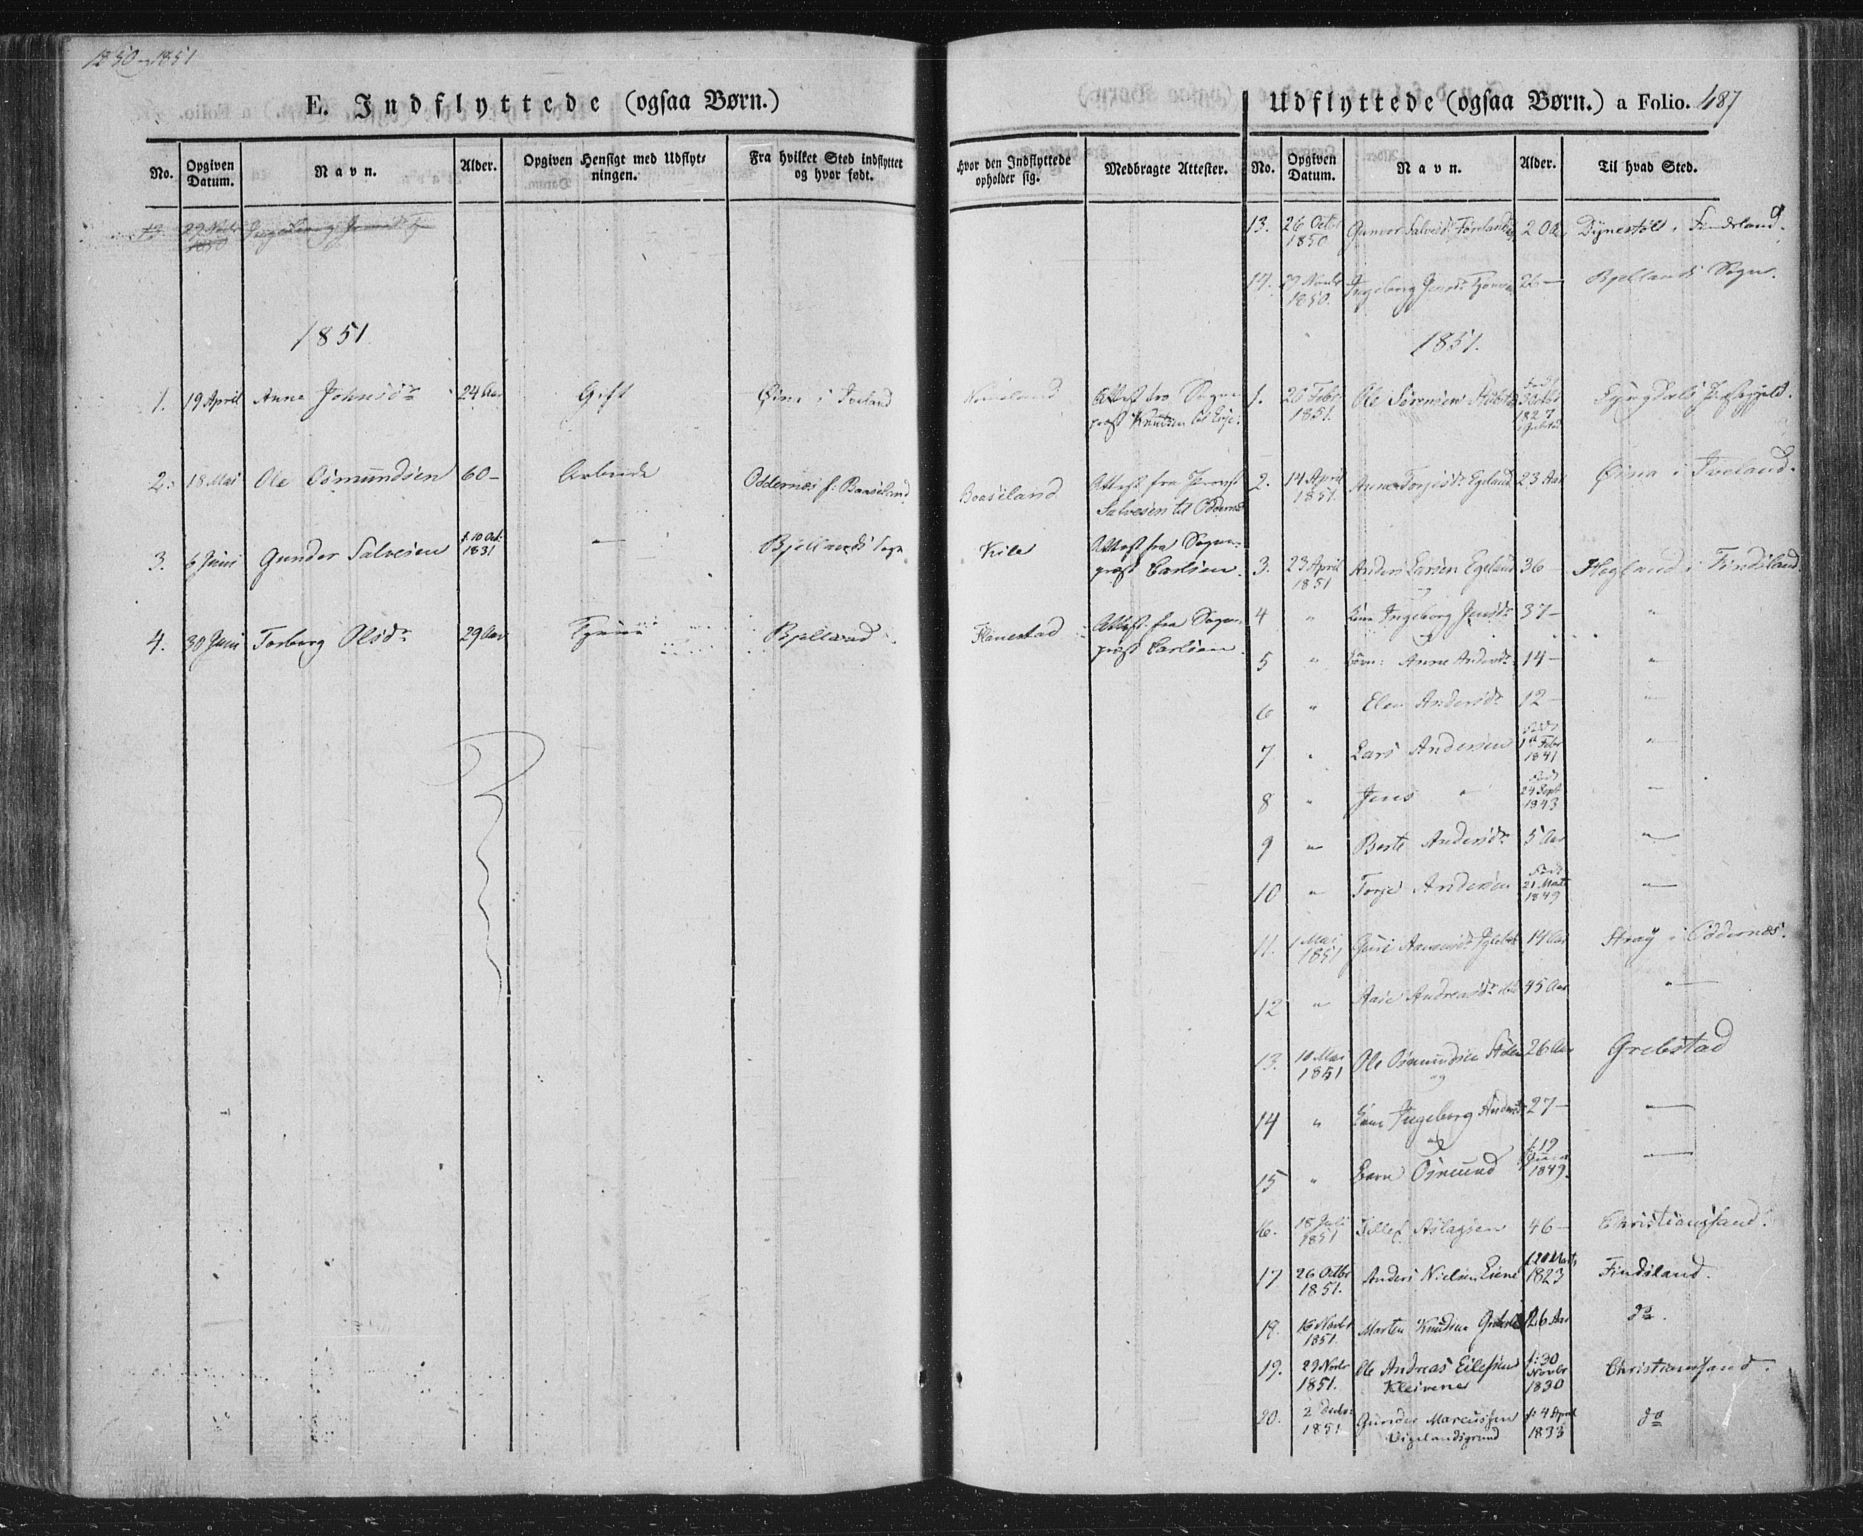 1850-1851
E. Indflyttede (ogsaa Børn.)
No. Opgiven Datum. Navn. Alder. Opgiven Hensigt med Udflytningen. Fra hvilket Sted indflyttet og hvor født. Hvor den Indflyttede opholder sig. Medbragte Attester.
1851
1. 19 April Anne Johnsdr 24 Aar Gift Øina i Iveland Attest fra Sognepræst Knutzen til Evje.
2. 18 Mai Ole Osmundsen 60 - Arbeide Oddernæs f: Baaseland Boaseland Attest fra Provst Salvesen til Oddernæs
3. 6 Juni Gunder Salvesen f. 10 Oct: 1831 — Bjellands Sogn Kile Attest fra Sognepræst Carlsen.
4. 30 Juni Torborg Olsdr 29 Aar Bjelland Attest fra Sognepræst Carlsen.
Udflyttede (ogsaa Børn.) a Folio. 487
No. Opgiven Datum. Navn. Alder. Til hvad Sted.
13. 26 Octbr 1850 Gunvor Salvesdr 20 Aar i Findsland.
14. 29 Novbr 1850. Ingeborg Jensdr 26 — Bjellands Sogn.
1851.
1. 20 Febr 1851. Ole Sørensen født 1827 Lyngdals Præstegjeld.
2. 14 April 1851. Anne Torjesdr Egeland 23 Aar Øina i Iveland.
3. 23 April 1851 Anders Larsen Egeland 36 — i Findsland.
og
4 " Kone Ingeborg Jensdr 37 — "
5 " Børn: Anne Andersdr 14 — "
6 " Elen Andersdr 12 — "
7 " Lars Andersen født 1 Febr 1841 "
8 " Jens " født 24 Sept 1843 "
9 " Berte Andersdr 5 Aar "
10 " Torje Andersen født 21 Marts 1849 "
11. 1 Mai 1851 14 Aar Stray i Oddernæs.
12 " Aase Andreasdr 45 Aar "
13. 10 Mai 1851 Ole Osmundsen 26 Aar Grebstad
og
14 " Kone Ingeborg Andersdr 27 — "
og
15 " Barn Osmund f. 19 Juni 1849. "
16. 18 Juli 1851 Tellef Aslagsen 46 — Christiansand.
17 26 Octbr 1851. Anders Nielsen Eiene f. 20 Marts 1823 Findsland.
19. 16 Novbr 1851. Marten Knudsen 26 Aar do.
19. 29 Novbr 1851. Ole Andreas Eilefsen Kleivene f: 30 Novbr 1830 Christiansand.
20. 2 Decbr: 1851 Gunder Marcussen Vigelandsgrund f: 4 April 1833 do